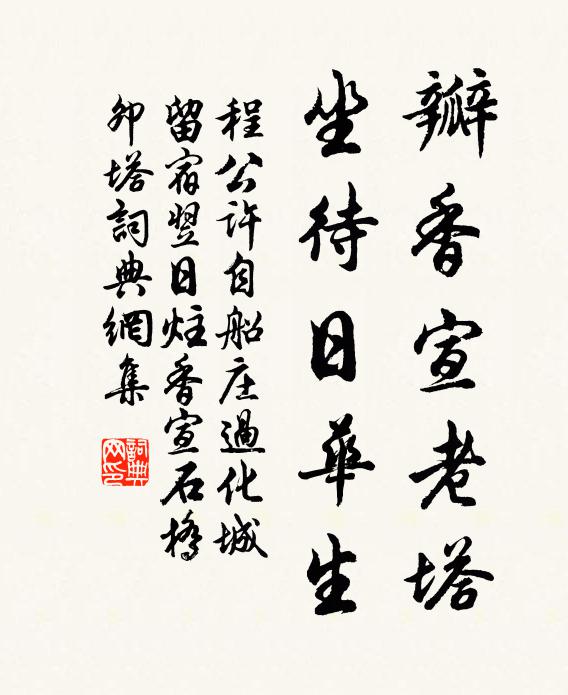 瓣香宣老塔
坐待日華生
程公許自船庄過化城
留宿翌日炷香宣石橋
卵塔詞典網集
詞典
网印